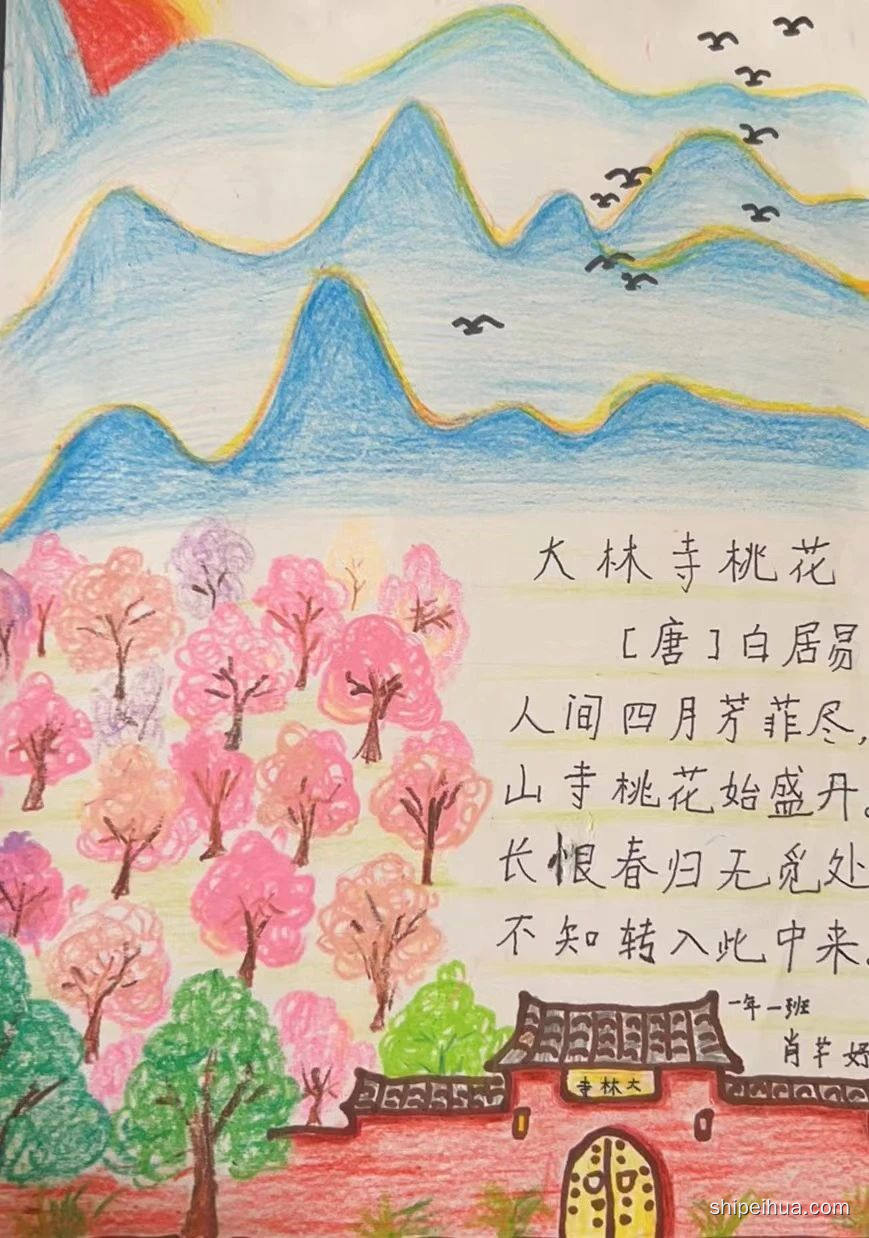 大林寺桃花
[唐]白居易
人间四月芳菲尽,
山寺桃花始盛丹。
长恨春归无觅处
不知转入此中来。
一年一班
肖芊妤
寺林大
shipeihua.com